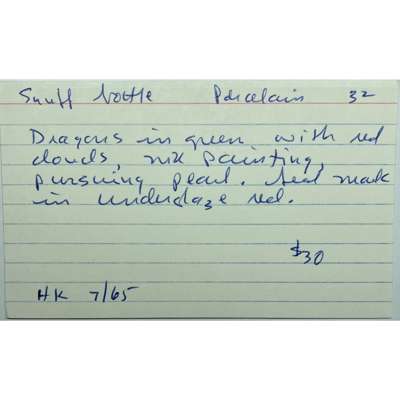 Snuff bottle Porcelain 32
Dragons in green with red
clouds, painting,
pursuing pearl. Seal mark
in underglaze red.
$30
HK 7/65